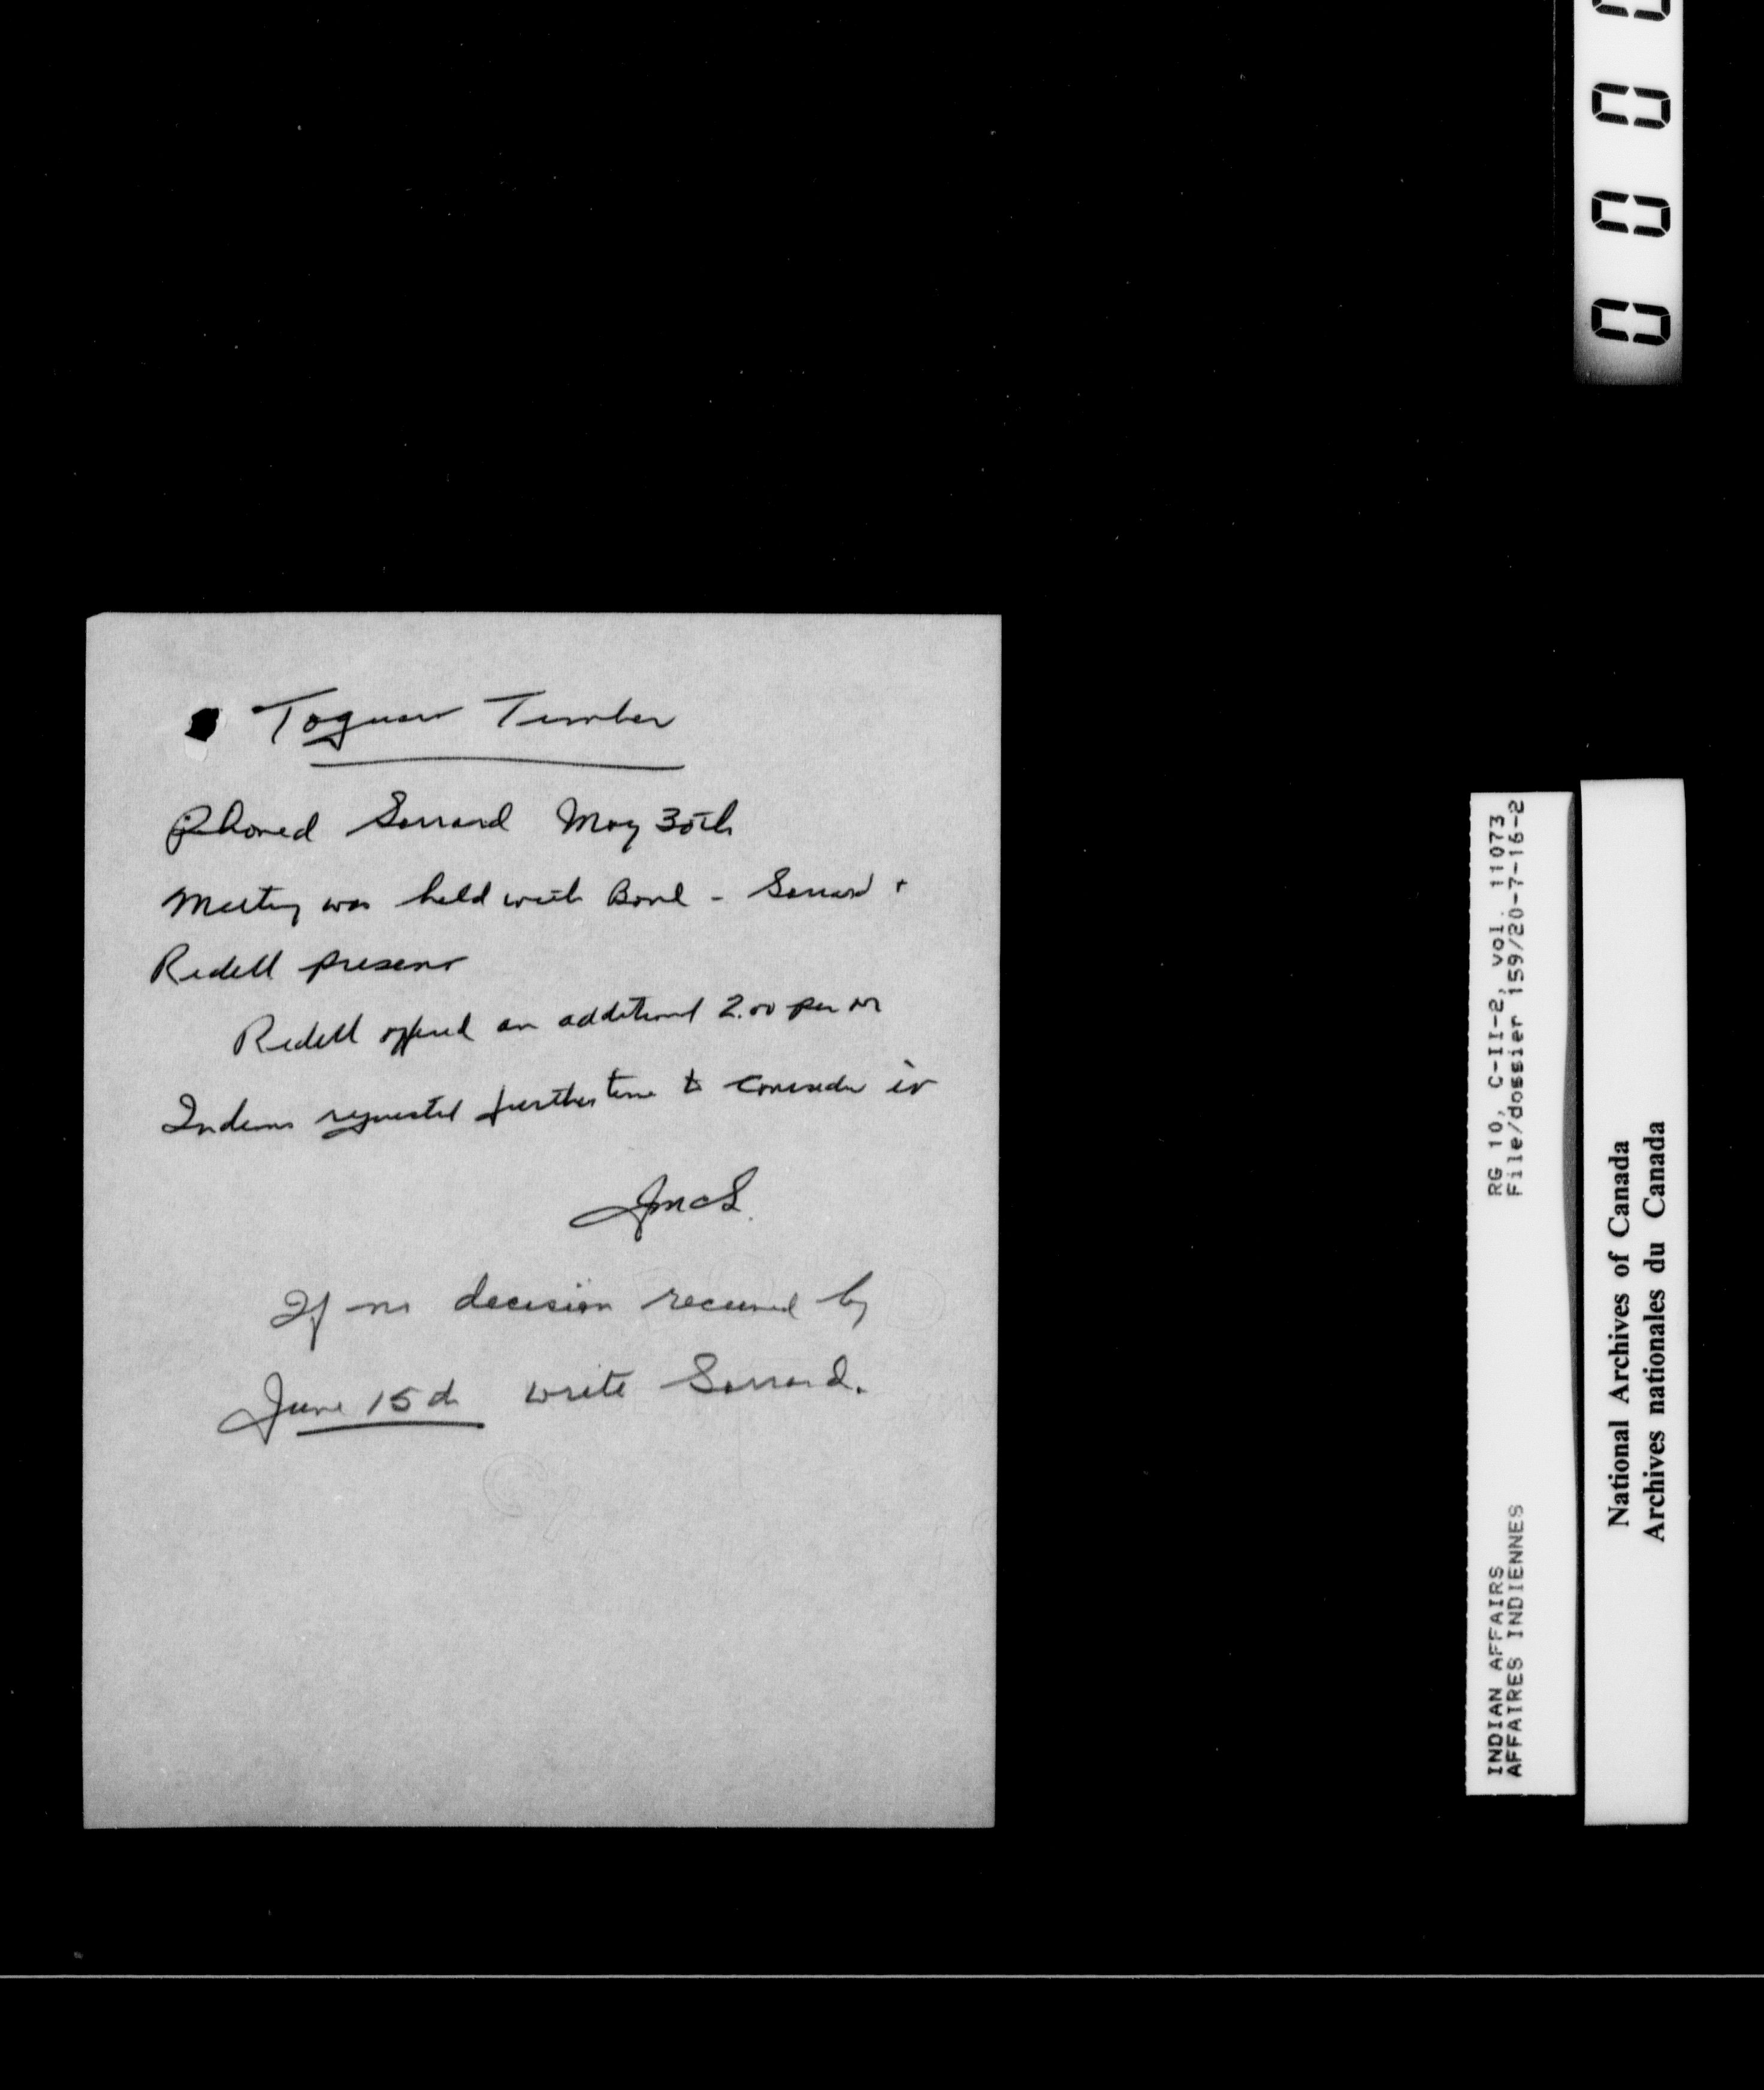 Toquart Timber
Phoned Sarrard May 30th
Meeting was held with Band - Sarrard +
Redell present
Redell offered an additional 2.00 per M
Indians requested further time to consider it
JMcL.
If no decision received by
June 15th write Sarrard.
0 0 0 0
RG 10, C-II-2, vol. 11073,
File/dossier 159/20-7-16-2
INDIAN AFFAIRS
AFFAIRES INDIENNES
National Archives of Canada
Archives nationales du Canada